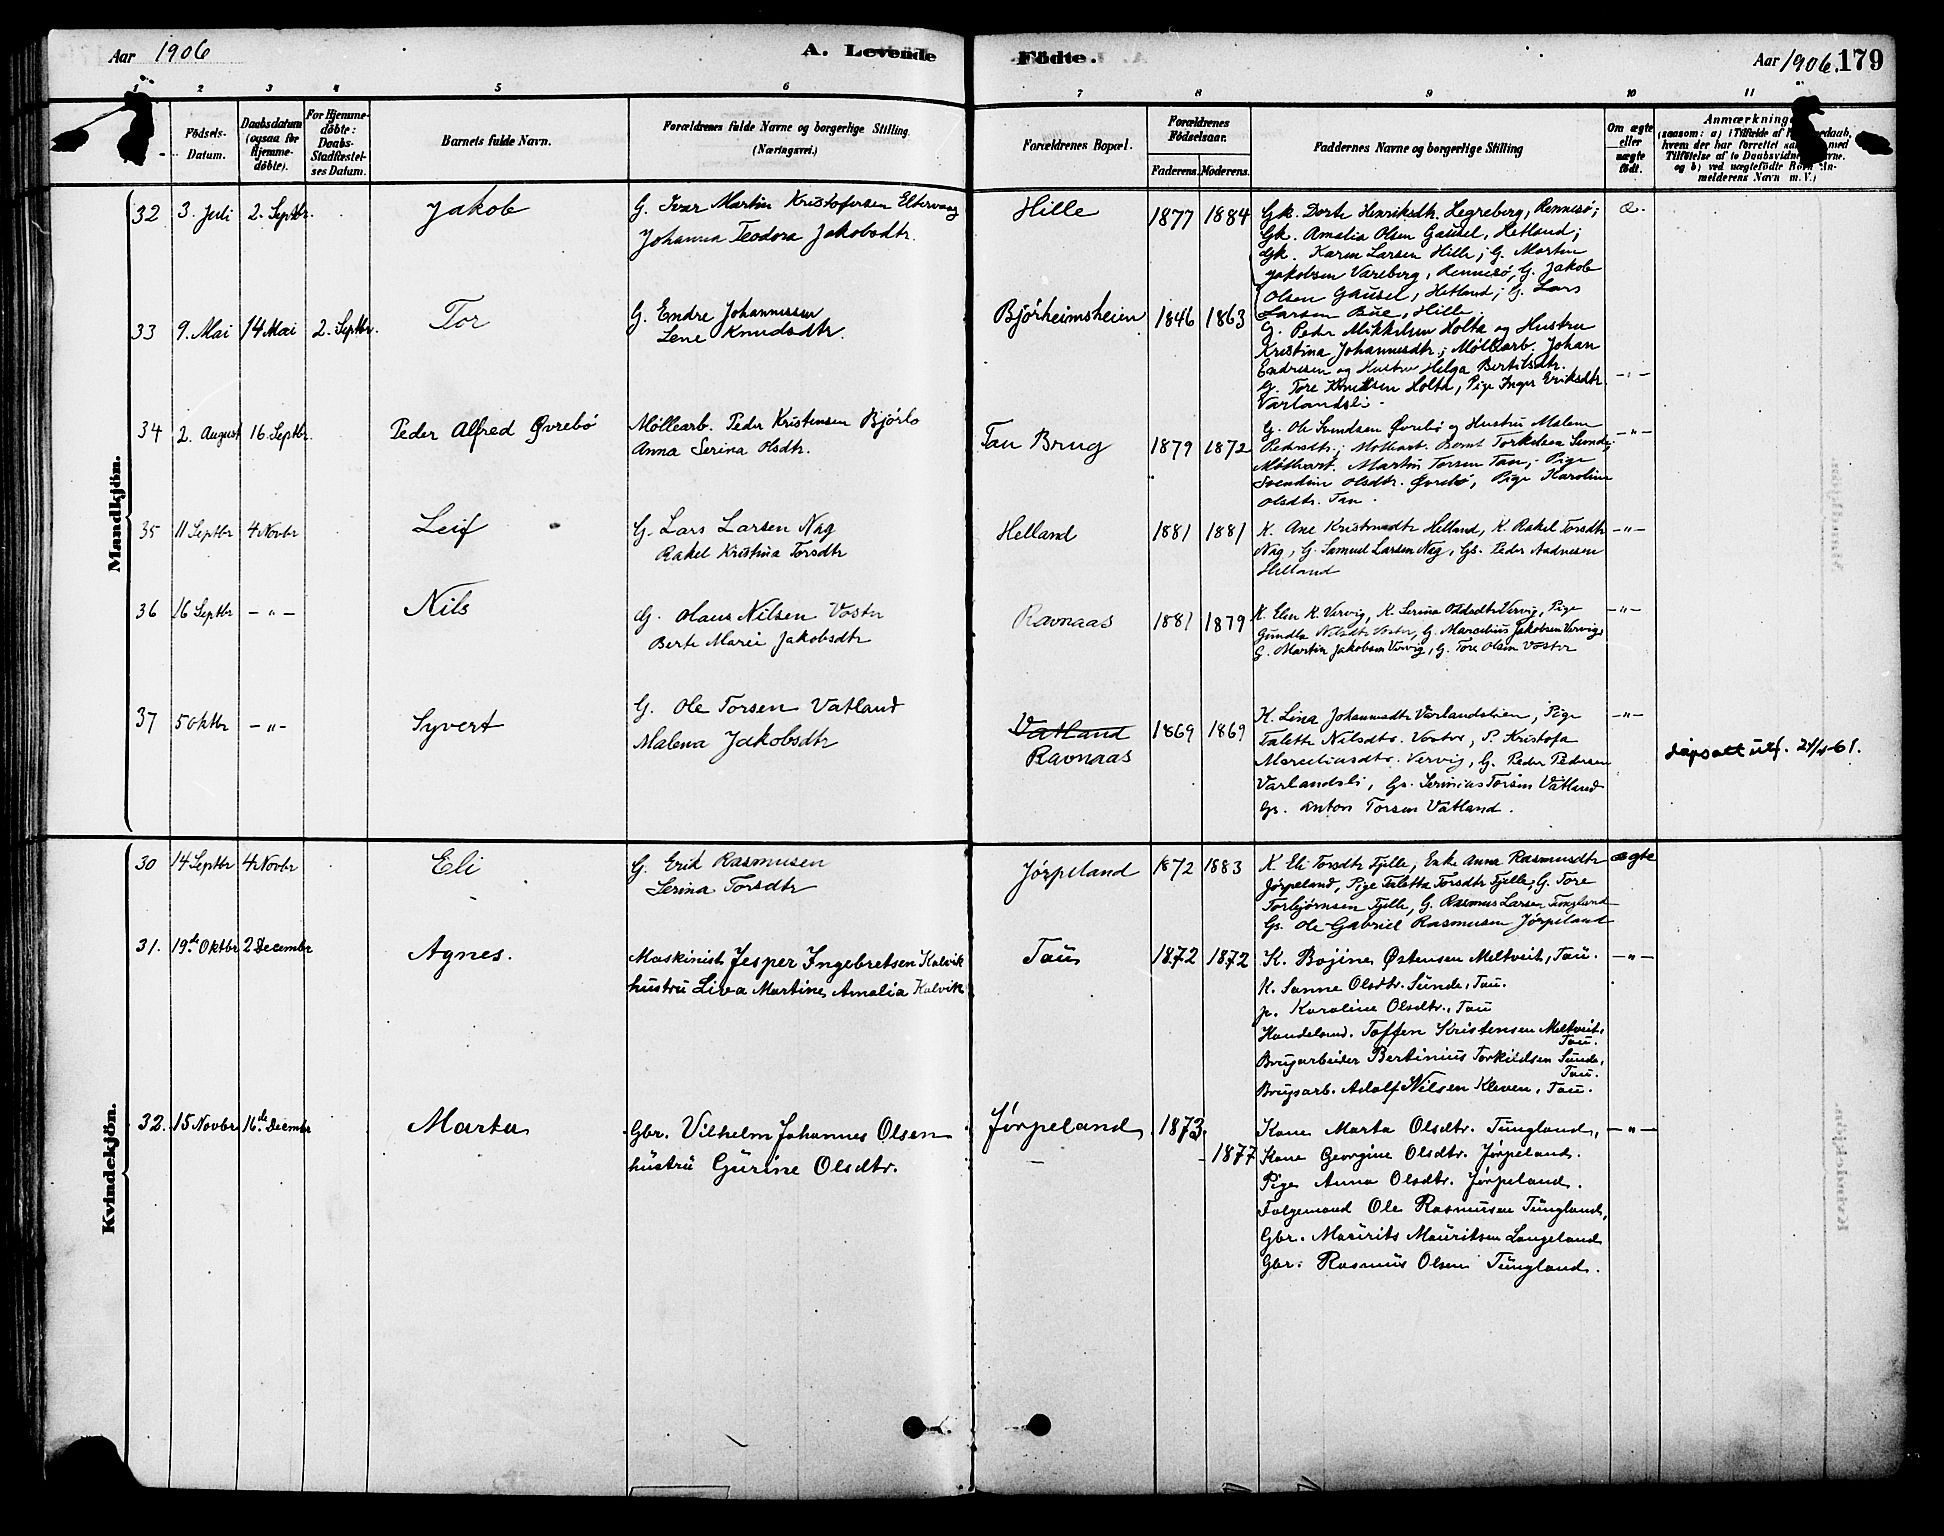 Aar 1906
A. Levende
Födte.
Aar 1906. 179
1 2 3 4 5 6 7 8 9 10 11
Födsels-Datum.
Daabsdatum (ogsaa for Hjemmedöbte).
For Hjemmedöbte: Daabs-Stadfæstelses Datum.
Barnets fulde Navn.
Forældrenes fulde Navne og borgerlige Stilling. (Næringsvei.)
Forældrenes Bopæl.
Forældrenes Födselsaar.
Faderens. Moderens.
Faddernes Navne og borgerlige Stilling
Om ægte eller uægte födt.
Anmærkning
Mandkjön.
32 3. Juli 2. Septbr. Jakob
G. Ivar Martin Kristofersen Eltervaag
Johanna Teodora Jakobsdtr.
Hille 1877 1884
Gk. Dorte Henriksdtr. Hegreberg, Rennesø;
Gk. Amalia Olsen Gausel, Hetland;
Gk. Karen Larsen Hille; G. Morten
Jakobsen Vareberg, Rennesø, G. Jakob
Olsen Gausel, Hetland; G. Lars
Larsen Bue, Hille.
33 9. Mai 14 Mai 2. Septbr. Tor
G. Endre Johannessen
Lene Knudsdtr.
Bjørheimsheien 1846 1863
G. Peder Mikkelsen Holta og Hustru
Kristina Johannesdtr.; Møllearb. Johan
Endresen og Hustru Helga Bertilsdtr.
G. Tore Knutsen Holta, Pige Inger Eriksdtr.
Varlandsli. -"-
34 2. August 16. Septbr. Peder Alfred Øvrebø
Møllearb. Peder Kristensen Bjørlo
Anna Serina Olsdtr.
Tau Brug 1879 1872
G. Ole Svendsen Øvrebø og Hustru Malene
Pedersdtr.; Møllearb. Bernt Torkelsen Sunde;
Møllearb. Martin Torsen Tau; Pige
Svendine Olsdtr. Øvrebø, Pige Karoline
Olsdtr. Tau. -"-
35 11 Septbr 4 Novbr Leif
G. Lars Larsen Nag
Rakel Kristina Torsdtr
Helland 1881 1881
K. Ane Kristensdtr Helland, K. Rakel Torsdtr
Nag, G. Samuel Larsen Nag, Gs. Peder Aadnesen
Helland -"-
36 16 Septbr -"- Nils
G. Olaus Nilsen Voster
Berte Marie Jakobsdtr
Ravnaas 1881 1879
K. Elen K. Vervig, K. Serina Oddsdtr Vervig, Pige
Gundla Nilsdtr Voster, G. Marcelius Jakobsen Vervig,
G. Martin Jakobsen Vervig, G. Tore Olsen Voster -"-
37 5 Oktbr -"- Syvert
G. Ole Torsen Vatland
Malena Jakobsdtr
Vatland
Ravnaas 1869 1869
K. Lina Johannesdtr Varlandslien, Pige
Taletta Nilsdtr. Voster, P. Kristofa
Marceliusdtr. Vervig, G. Peder Pedersen
Varlandsli, Gs. Serinius Torsen Vatland
Gs. Anton Torsen Vatland. -"-
dåpsatt utf. 21/4-61.
Kvindekjön.
30 14 Septbr 4 Novbr Eli
G. Erik Rasmusen
Serina Torsdtr
Jørpeland 1872 1883
K. Eli Torsdtr Fjelle, Enke Anna Rasmusdtr
Jørpeland, Pige Taletta Torsdtr Fjelle, G. Tore
Torbjørnsen Fjelle, G. Rasmus Larsen Tungland
Gs. Ole Gabriel Rasmusen Jørpeland
ægte
31. 19de Oktbr 2 Decembr Agnes.
Maskinist Jesper Ingebretsen Kalvik
hustru Liva Martine Amalia Kalvik
Tau 1872 1872
K. Bojine Østensen Meltveit, Tau.
K. Sanne Olsdtr. Sunde, Tau.
p. Karoline Olsdtr., Tau
Handelsmd. Toffen Kristensen Meltveit, Tau.
Brugarbeider Bertinius Torkildsen Sunde, Tau.
Brugsarb. Adolf Nilsen Kleven, Tau. -"-
32. 15 Novbr 16de Decembr Marta
Gbr. Vilhelm Johannes Olsen
hustru Gurine Olsdtr.
Jørpeland 1873. 1877
Kone Marta Olsdtr. Tungland,
Kone Georgine Olsdtr. Jørpeland.
Pige Anna Olsdtr. Jørpeland.
Følgemand Ole Rasmusen Tungland,
Gbr. Maurits Mauritsen Langeland
Gbr. Rasmus Olsen Tungland. -"-